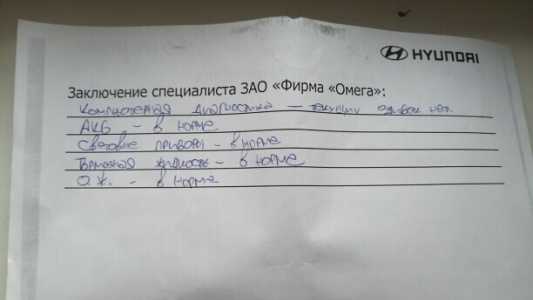 HYUNDAI
Заключение специалиста ЗАО «Фирма «Омега»:
Компьютерная диагностика – текущих ошибок нет.
АКБ – в норме
Световые приборы – в норме
Тормозная жидкость – в норме
О.Ж. – в норме